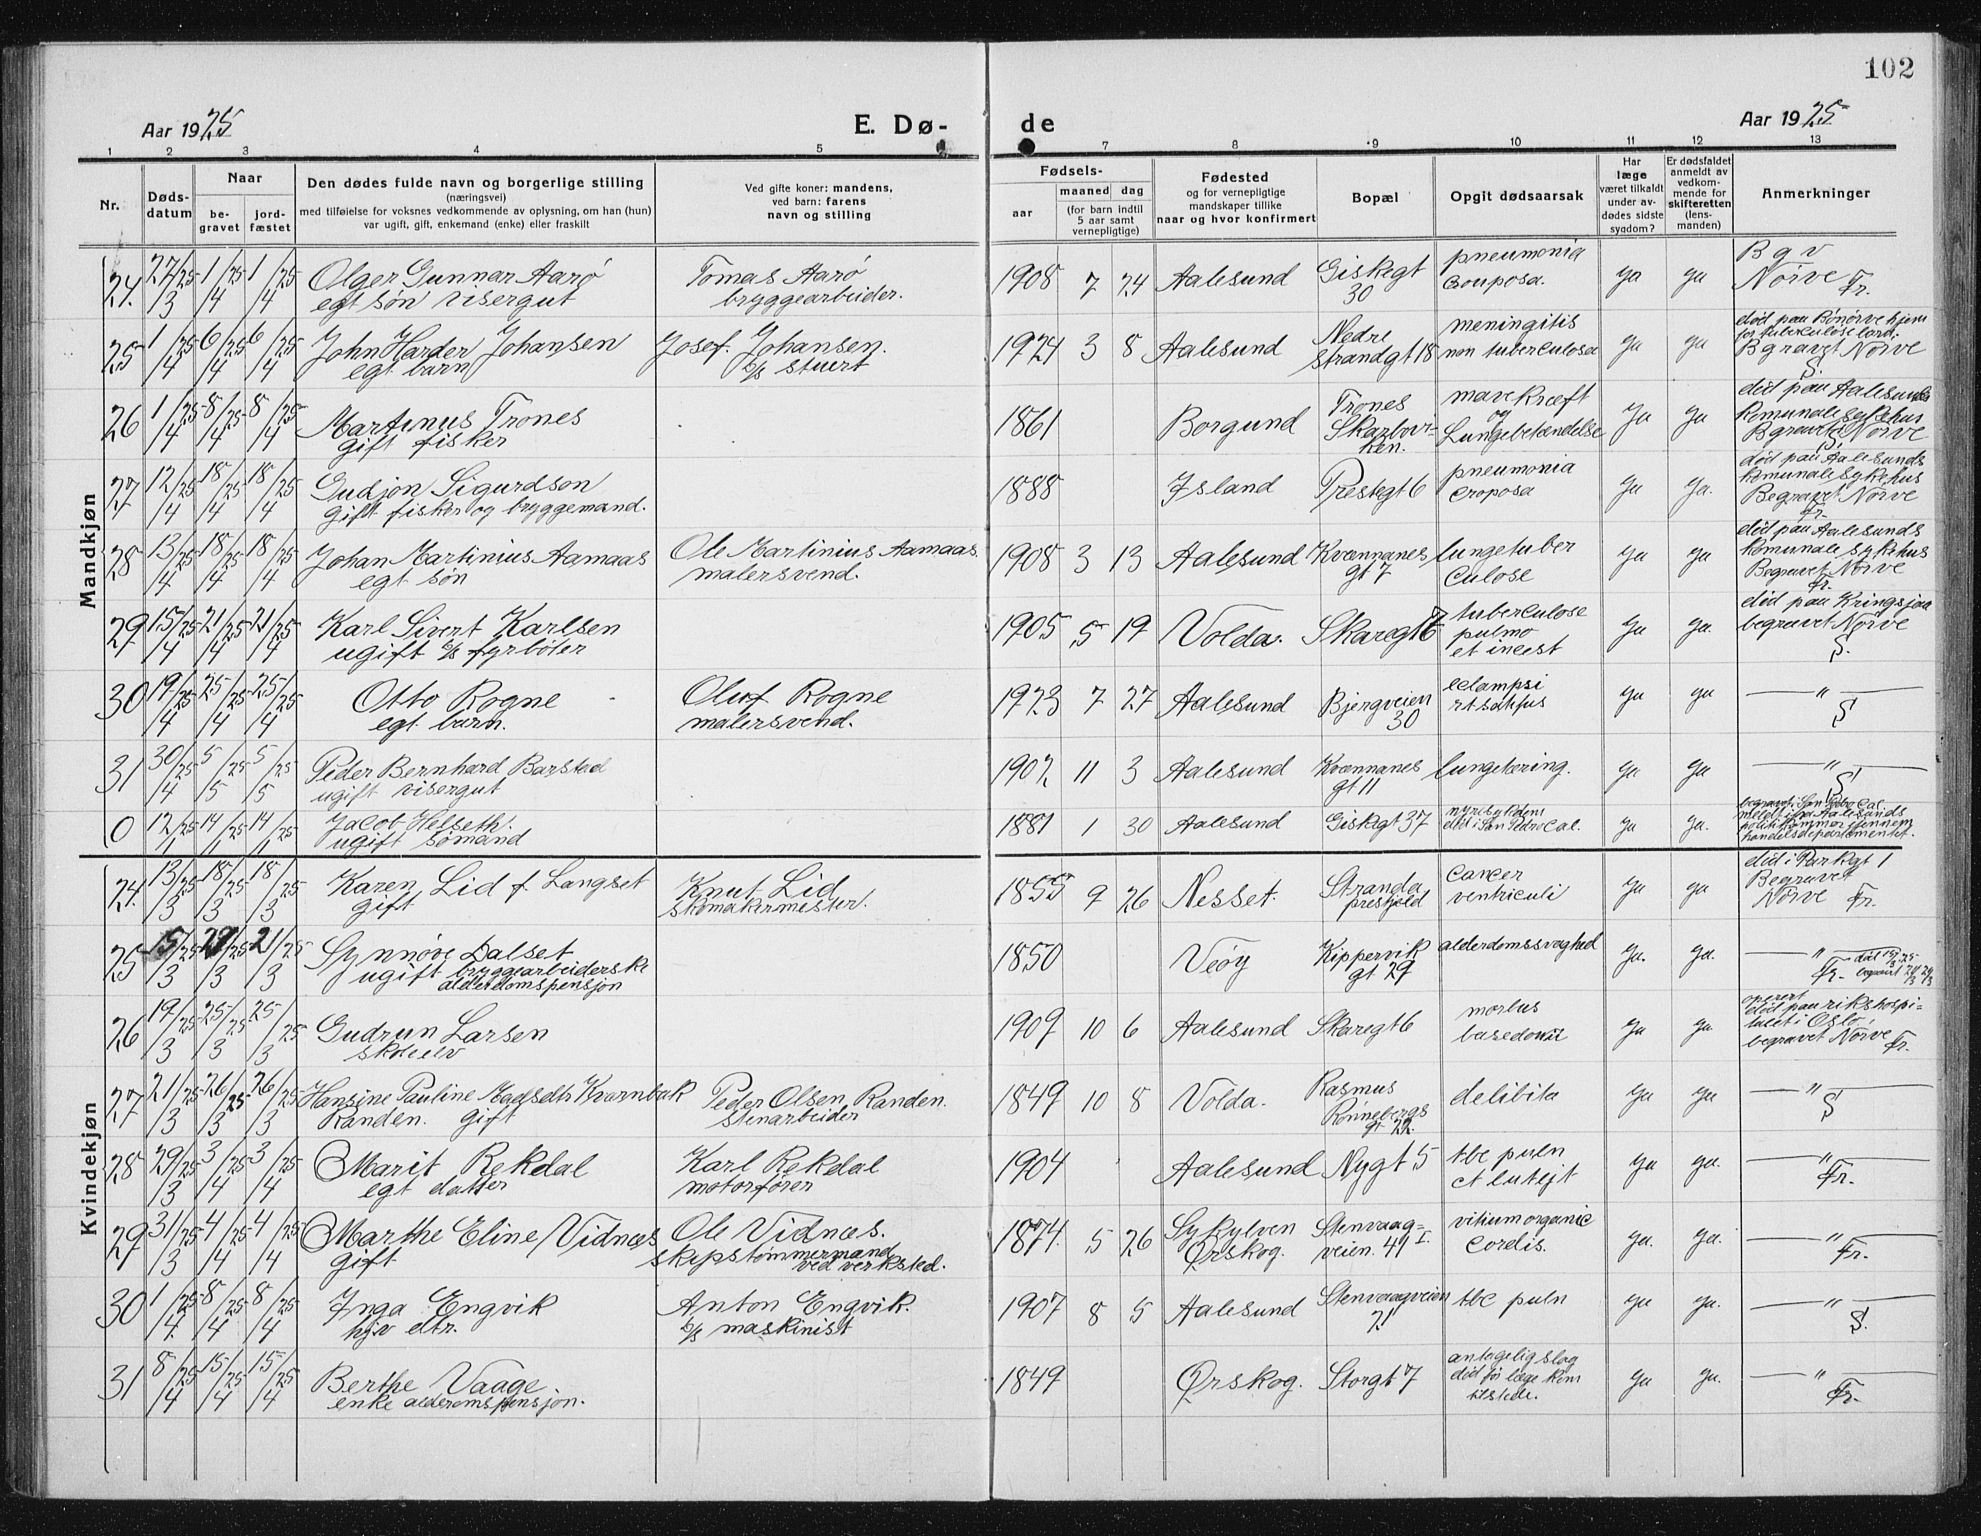 102
Aar 1925
E. Dø-
de
Aar 1925
1 2 3 4 5 7 8 9 10 11 12 13
Nr.
Døds-
datum
Naar
be-
gravet
jord-
fæstet
Den dødes fulde navn og borgerlige stilling
(næringsvei)
med tilføielse for voksnes vedkommende av oplysning, om han (hun)
var ugift, gift, enkemand (enke) eller fraskilt
Ved gifte koner: mandens,
ved barn: farens
navn og stilling
Fødsels-
aar
maaned dag
(for barn indtil
5 aar samt
vernepligtige)
Fødested
og for vernepligtige
mandskaper tillike
naar og hvor konfirmert
Bopæl
Opgit dødsaarsak
Har
læge
været tilkaldt
under av-
dødes sidste
sygdom?
Er dødsfaldet
anmeldt av
vedkom-
mende for
skifteretten
(lens-
manden)
Anmerkninger
Mandkjøn
24. 27/3 25 1/4 25 1/4 25 Olger Gunnar Aarø Tomas Aarø 1908 7 24 Aalesund Giskegt pneumonia ja ja B g v
egt søn visergut bryggearbeider. 30 couposa. Nørve Fr.
25 1/4 25 6/4 25 6/4 25 John Harder Johansen Josef. Johansen. 1924 3 8 Aalesund Nedre meningitis ja ja død paa Bønørve hjem
egt barn b/s stuert strandgt 18 non tuberculosa for tuberculose barn.
Bgravet Nørve
S.
26 1/4 25 8/4 25 8/4 25 Martinus Trones 1861 Borgund Trones mavekræft ja ja død paa Aalesunds
gift fisker Skarbøvi- og komunale sykehus
ken. Lungebetændelse Bgravet Nørve
S.
27 12/4 25 18/4 25 18/4 25 Gudjon Sigurdson 1888 Island Prestegt 6 pneumonia ja ja. død paa Aalesunds
gift fisker og bryggemand. croposa komunale sykehus
Begravet Nørve
Fr.
28 13/4 25 18/4 25 18/4 25 Johan Martinius Aamaas Ole Martinius Aamaas. 1908 3 13 Aalesund Kvennanes lungetuber ja ja død paa Aalesunds
egt søn malersvend. gt 7 culose komunale sykehus
Begravet Nørve
Fr.
29 15/4 25 21/4 25 21/4 25 Karl Sivert Karlsen 1905 5 19 Volda. Skaregt tuberculose ja ja. død paa Kringsjaa
ugift b/s fyrbøter pulmo begravet Nørve
S.
30 19/4 25 25/4 25 25/4 25 Otto Rogne Oluf Rogne 1923 7 27 Aalesund Bjergveien eclampsi ja ja — " —
egt barn. malersvend. 30 S
31 30/4 25 5/5 25 5/5 25 Peder Bernhard Barstad 1902 11 3 Aalesund Kvennanes lungetæring. ja ja — " —
ugift visergut gt 11 S
0 12/1 25 14/1 25 14/1 25 Jacob Helseth. 1881 1 30 Aalesund Giskegt 37 nyresykdom ja ja. begravet i San Pedro Cal.
ugift sømand død i San Pedro Cal. meldt fra Aalesunds
politikammer gjennem
handelsdepartementet.
Kvindekjøn
24. 13/3 25 18/3 25 18/3 25 Karen Lid f. Langset Knut Lid 1855 9 26 Nesset. Stranda cancer ja ja død i Parkgt 1
gift skomakermester. prestgjeld ventriculi Begravet
Nørve Fr.
25 15/3 25 /3 25 21/3 25 Synnøve Dalset 1850 Veøy Kippervik alderdomssvaghed ja. ja. — " —
ugift bryggearbeiderske gt 29 Fr.
alderdomspensjon
26 19/3 25 25/3 25 25/3 25 Gudrun Larsen 1909 10 6 Aalesund Skaregt 6 morbus ja ja operert
skoleelv død paa rikshospi-
talet i Oslo.
begravet Nørve Fr.
27 21/3 25 26/3 25 26/3 25 Hansine Pauline Peder Olsen Randen. 1849 10 8 Volda. Rasmus delibita ja ja — " —
Randen. gift stenarbeider Rønnebergs S
28 29/3 25 3/4 25 3/4 25 Marit Rekdal Karl Rekdal 1904 Aalesund Nygt 5 tbc puln ja ja. — " —
egt datter motorfører Fr.
29 31/3 25 4/4 25 4/4 25 Marthe Eline Vidnæs Ole Vidnæs. 1874. 5 26 Sykylven Stenvaag- vitium organic ja. ja. — " —
gift skipstømmermand Ørskog. veien. 41 I. cordis. Fr.
ved verksted.
30 1/4 25 8/4 25 8/4 25 Inga Engvik Anton Engvik. 1907 8 5 Aalesund Stenvaagveien tbc puln ja ja. — " —
hjv dtr. b/s maskinist 21 S.
31 8/4 25 15/4 25 15/4 25 Berthe Vaage 1849 Ørskog. Storgt 7 antagelig slag ja ja. — " —
enke alderomspensjon. død før læge kom Fr.
tilstede.